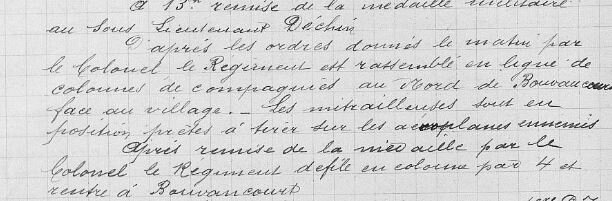 A 15h remise de la médaille militaire
au Sous Lieutenant Déchin
D'après les ordres donnés le matin par
le Colonel le Régiment est rassemblé en ligne de
colonnes de compagnies au Nord de Bouvancourt
face au village. _ Les mitrailleuses sont en
position prêtes à tirer sur les aéroplanes ennemis
Après remise de la médaille par le
Colonel le Régiment défile en colonne par 4 et
rentre à Bouvancourt